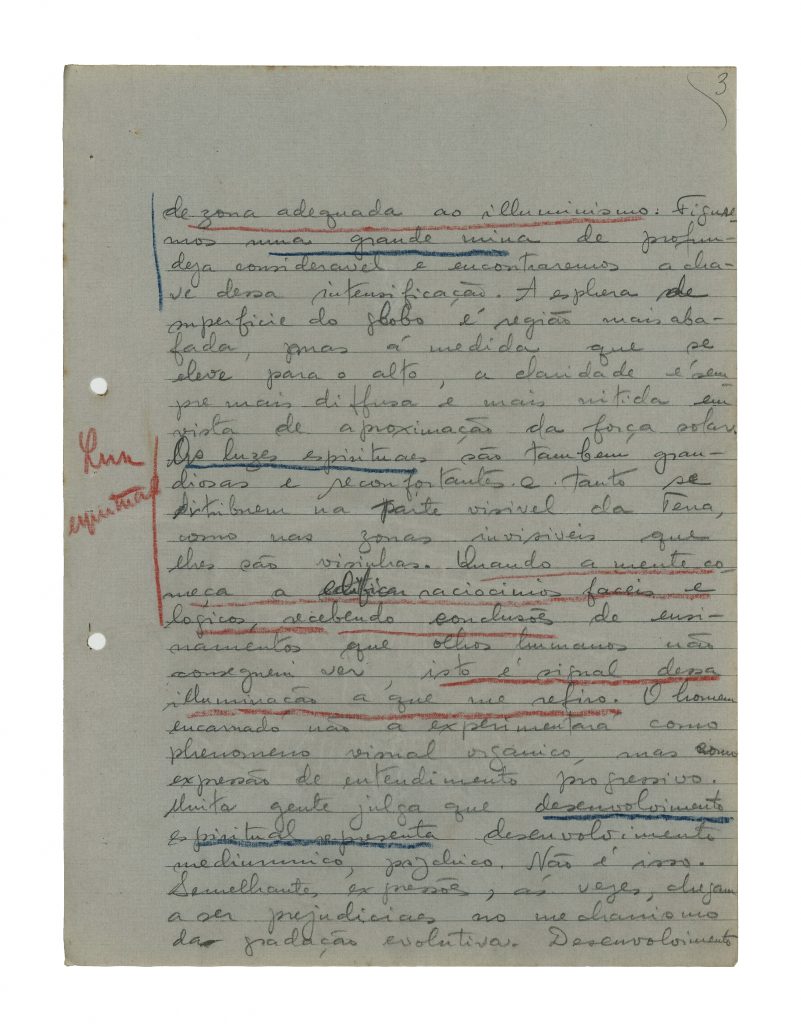 3
de zona adequada ao illuminismo. Figure-
mos uma grande mina de profun-
deza consideravel e encontraremos a cha-
ve dessa intensificação. A esphera de
superficie do globo é região mais aba-
fada, mas á medida que se
eleve para o alto, a claridade é sem
pre mais diffusa e mais nitida em
vista de aproximação da força solar.
As luzes espirituaes são tambem gran-
diosas e reconfortantes e tanto se
distribuem na parte visivel da Terra,
como nas zonas invisiveis que
lhes são visinhas. Quando a mente co-
meça a edificar raciocinios faceis e
logicos, recebendo conclusões de ensi-
namentos que olhos humanos não
conseguem ver, isto é signal dessa
illuminação a que me refiro. O homem
encarnado não a experimentará como
phenomeno visual organico, mas como
expressão de entendimento progressivo.
Muita gente julga que desenvolvimento
espiritual representa desenvolvimento
mediumnico, psychico. Não é isso.
Semelhantes expressões, ás vezes, chegam
a ser prejudiciaes no mechanismo
da gradação evolutiva. Desenvolvimento
Luz
espiritual